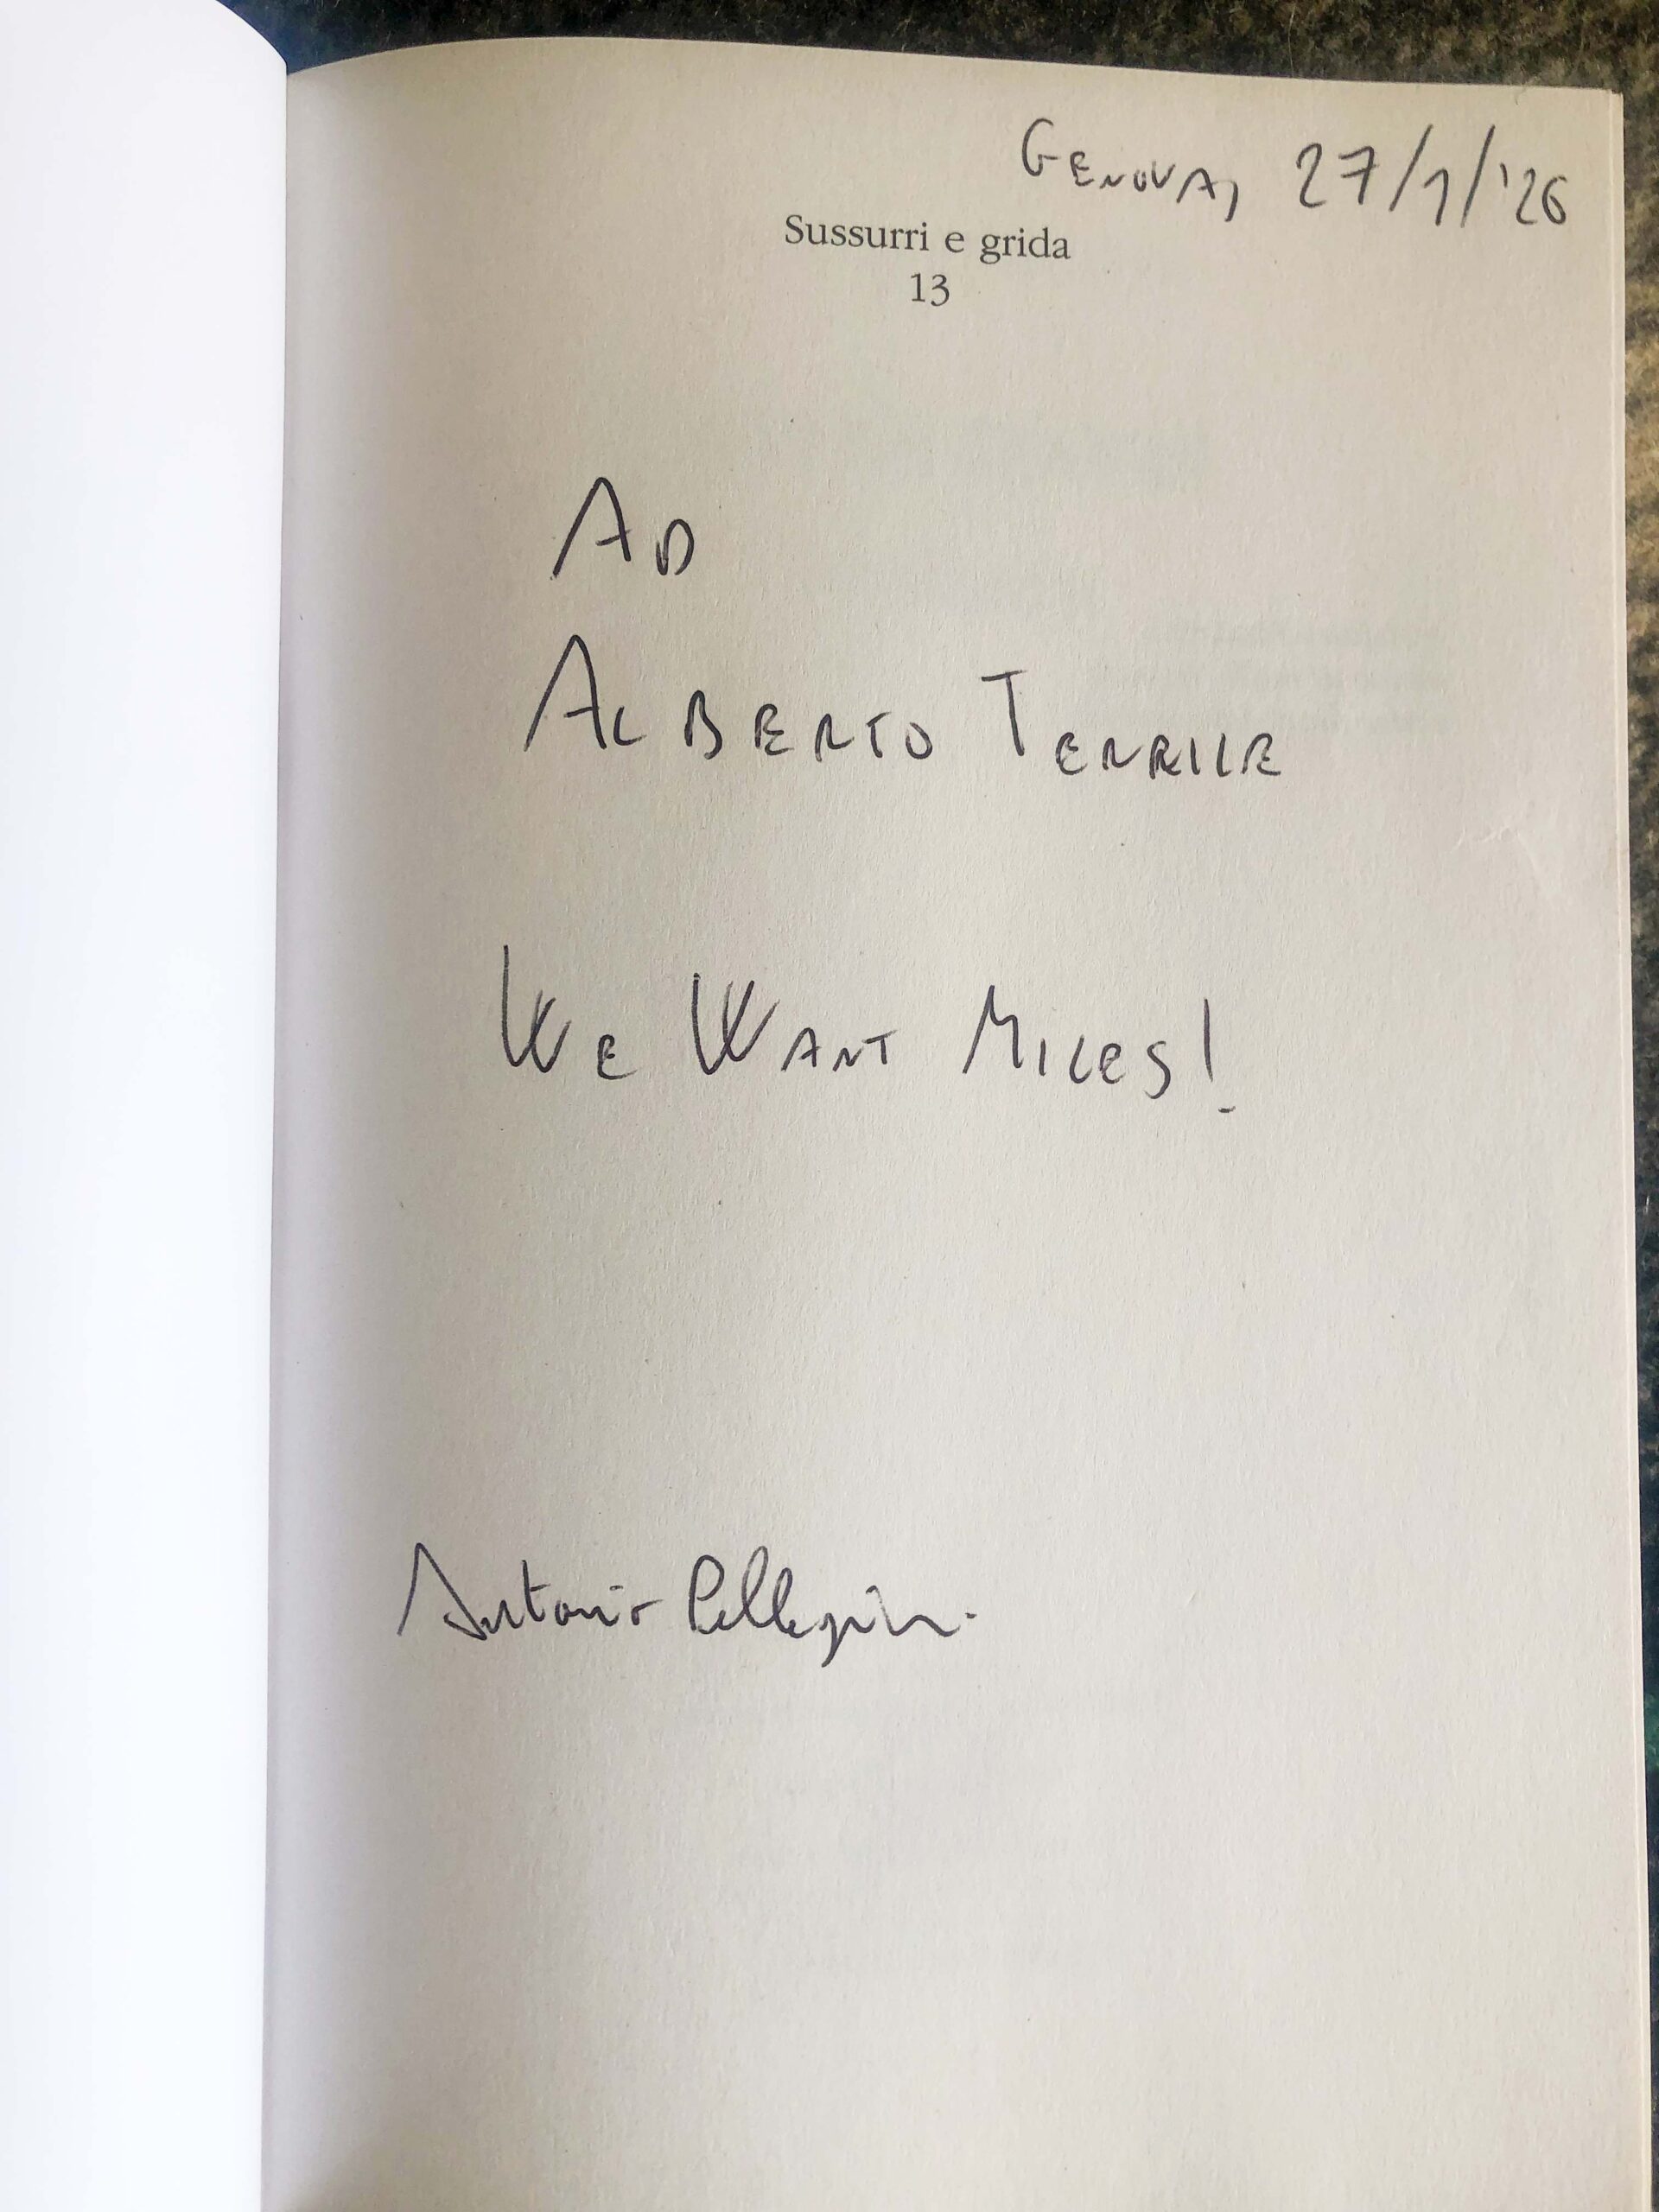 Genova, 27/1/'26
Sussurri e grida
13
Ad
Alberto Terrile
We Want Miles!
Antonio Pellegrini